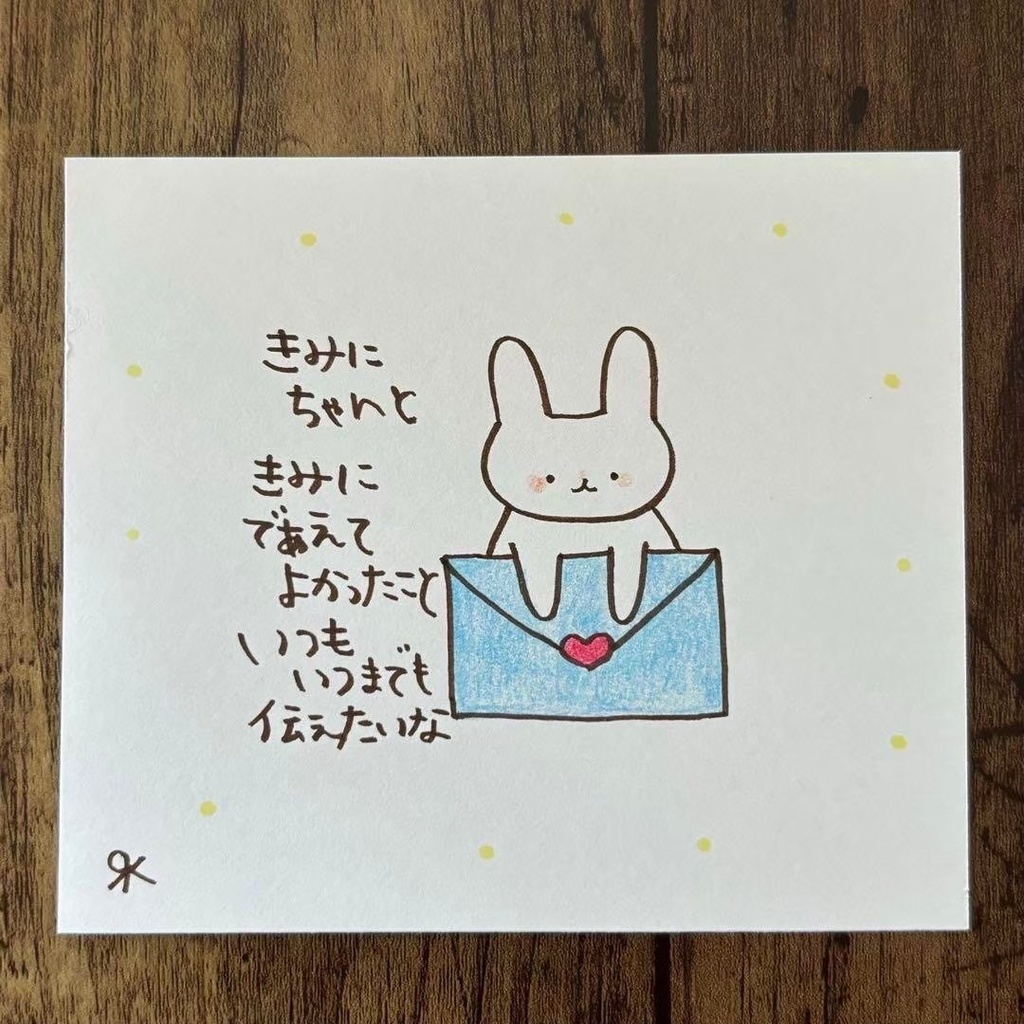 きみに
ちゃんと
きみに
であえて
よかったこと
いつも
いつまでも
伝えたいな